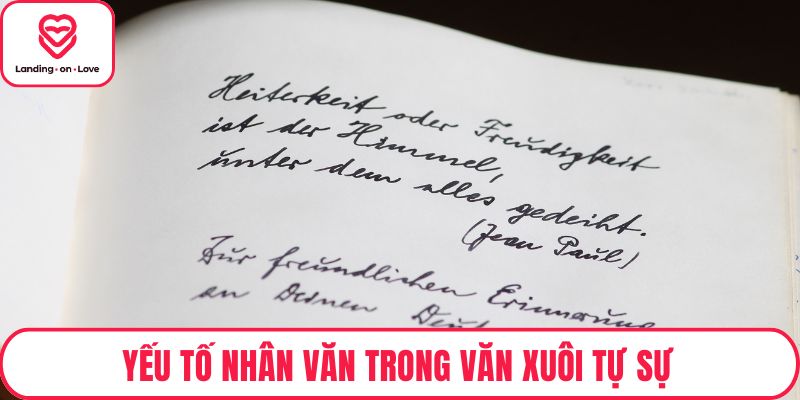 Landing·on·Love
Heiterkeit oder Freudigkeit
ist der Himmel,
unter dem alles gedeiht.
(Jean Paul)
Zur freundlichen Erinnerung
an Deinen
YẾU TỐ NHÂN VĂN TRONG VĂN XUÔI TỰ SỰ